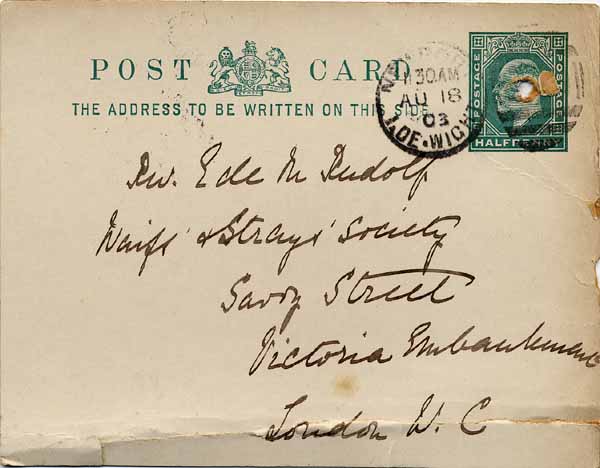 POST CARD
THE ADDRESS TO BE WRITTEN ON THIS SIDE
30AM
AU 18
03
I.OF.WIGHT
POSTAGE
POSTAGE
HALFPE
Rev. Ede M Rudolf
Waifs' & Strays' Society
Savoy Street
Victoria Embankment
London W. C